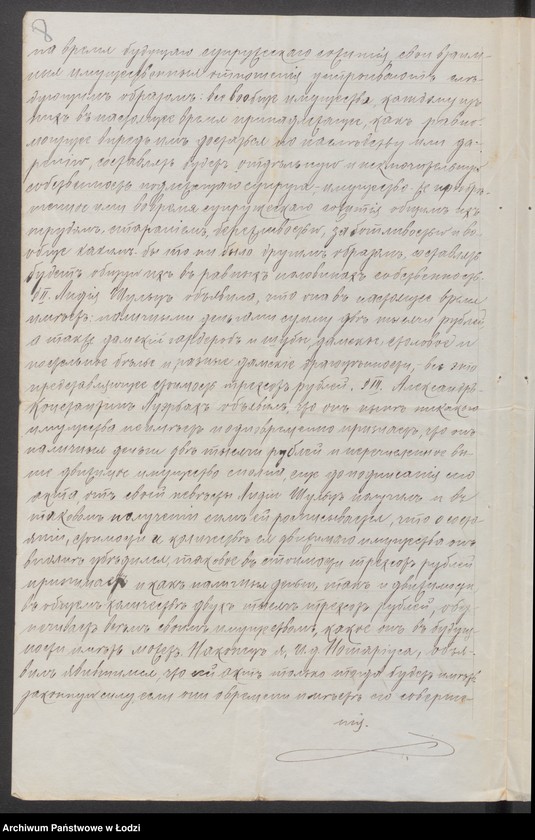 8
на время будущаго супружескаго сожитія свои взаим-
ныя имущественныя отношенія устроиваютъ слѣ-
дующимъ образомъ: все вообще имущество, каждому изъ
нихъ въ настоящее время принадлежащее, какъ равно
могущее впредь имъ достаться по наслѣдству или да-
ренію, составлять будетъ отдѣльную и исключительную
собственность подлежащаго супруга, имущество же пріобрѣ-
тенное ими во время супружескаго сожитія общимъ ихъ
трудомъ, стараніемъ, бережливостью, заботливостью и во-
обще какимъ бы то ни было другимъ образомъ, составлять
будетъ общую ихъ въ равныхъ половинахъ собственность.
§ II. Лидія Шульцъ объявила, что она въ настоящее время
имѣетъ: наличными деньгами сумму двѣ тысячи рублей,
а также дамскій гардеробъ и шубы дамскія, столовое и
постельное бѣлье и разныя дамскія драгоцѣнности, все это
представляющее стоимость триста рублей. § III. Александръ
Константинъ Ауэрбахъ объявилъ, что онъ нынѣ никакого
имущества не имѣетъ и одновременно призналъ, что онъ
наличныя деньги двѣ тысячи рублей и перечисленное вы-
ше движимое имущество сполна, еще до подписанія сего
акта, отъ своей невѣсты Лидіи Шульцъ получилъ и въ
таковомъ полученіи симъ ей росписывается, что о состо-
яніи, стоимости и количествѣ ея движимаго имущества онъ
вполнѣ убѣдился, таковое въ стоимости триста рублей
принимаетъ и какъ наличныя деньги, такъ и движимость
въ общемъ количествѣ двухъ тысячъ триста рублей, обез-
печиваетъ всѣмъ своимъ имуществомъ, какое онъ въ будущ-
ности имѣть можетъ. Наконецъ я, И. д. Нотаріуса, объя-
вилъ явившимся, что сей актъ только тогда будетъ имѣть
законную силу, если они обремени имѣютъ его соверше-
ній.
Archiwum Państwowe w Łodzi